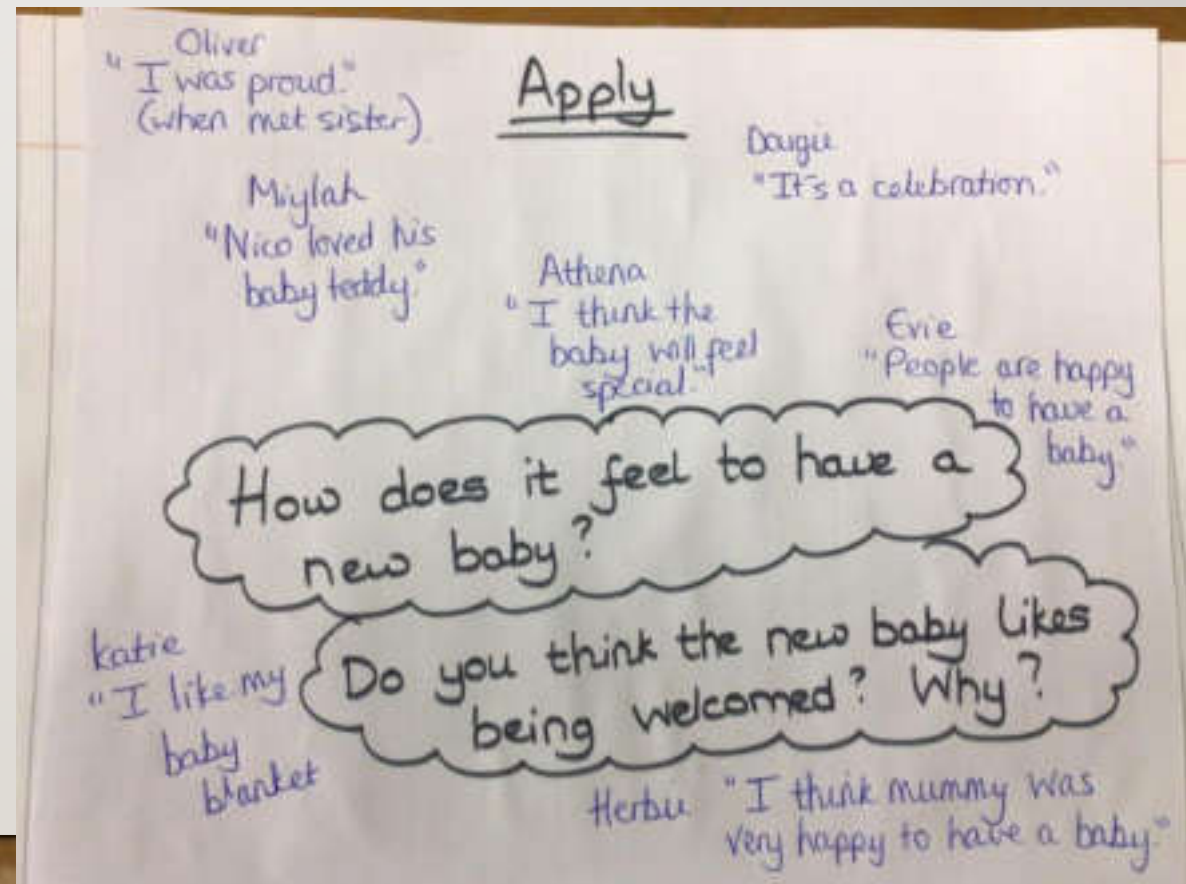 Apply
Oliver
"I was proud."
(when met sister)
Dougie
"It's a celebration."
Miylah
"Nico loved his
baby teddy"
Athena
"I think the
baby will feel
special."
Evie
"People are happy
to have a
baby"
How does it feel to have a
new baby?
Do you think the new baby likes
being welcomed? Why?
Katie
"I like my
baby
blanket
Herbie "I think mummy was
very happy to have a baby"